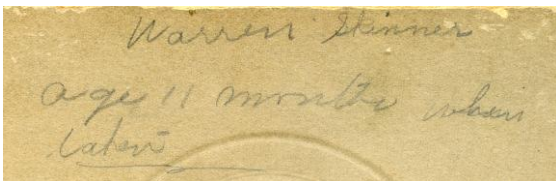 Warren Skinner
age 11 months when
taken